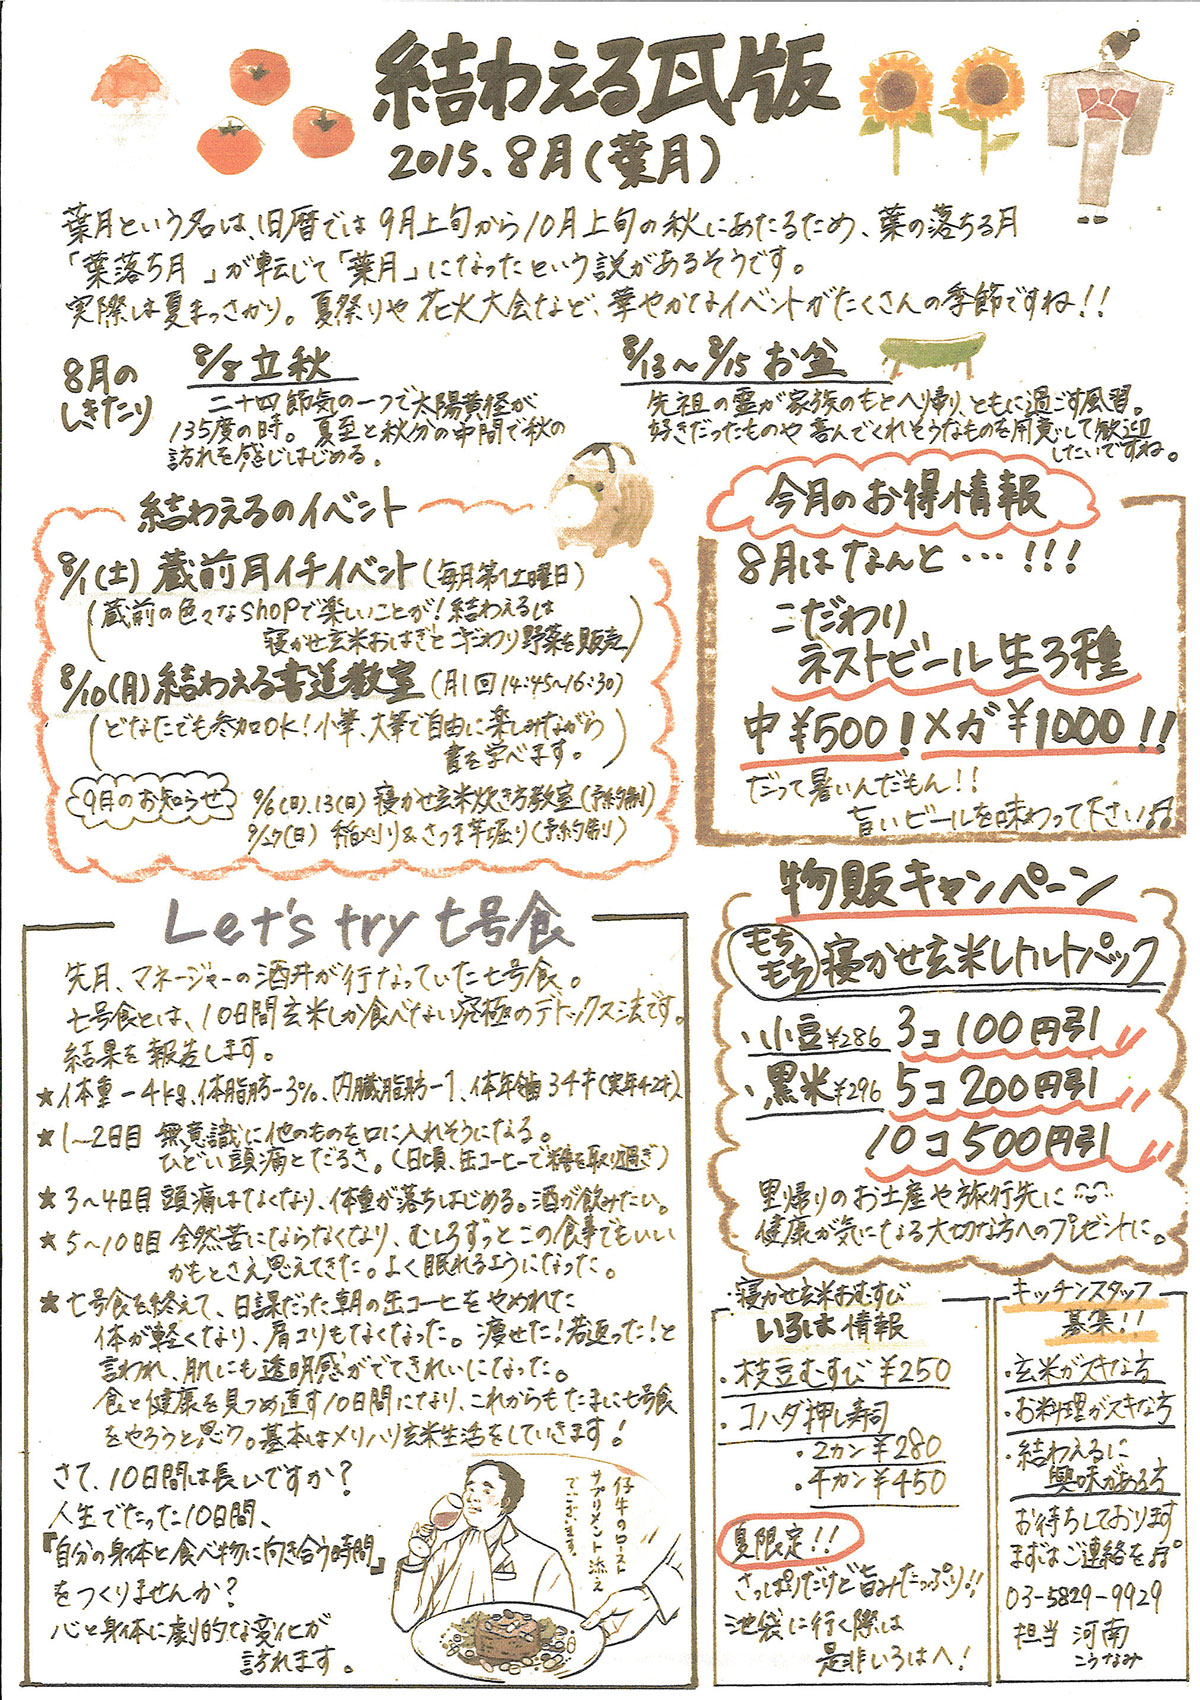 結わえる瓦版
2015.8月(葉月)
葉月という名は、旧暦では9月上旬から10月上旬の秋にあたるため、葉の落ちる月
「葉落ち月」が転じて「葉月」になったという説があるそうです。
実際は夏まっさかり。夏祭りや花火大会など、華やかなイベントがたくさんの季節ですね!!
8月の
しきたり
8/8 立秋
二十四節気の一つで太陽黄経が
135度の時。夏至と秋分の中間で秋の
訪れを感じはじめる。
8/13〜8/15 お盆
先祖の霊が家族のもとへ帰り、ともに過ごす風習。
好きだったものや喜んでくれそうなものを用意して歓迎
したいですね。
結わえるのイベント
8/1(土) 蔵前月イチイベント(毎月第1土曜日)
(蔵前の色々なshopで楽しいことが!結わえるは
寝かせ玄米おはぎとこだわり野菜を販売)
8/10(月) 結わえる書道教室(月1回14:45〜16:30)
(どなたでも参加OK!小筆、大筆で自由に楽しみながら
書を学べます。)
9月のお知らせ
9/6(日).13(日) 寝かせ玄米炊き方教室(予約制)
9/27(日) 稲刈り&さつま芋堀り(予約制)
今月のお得情報
8月はなんと…!!!
こだわり
ネストビール生3種
中¥500!メガ¥1000!!
だって暑いんだもん!!
旨いビールを味わって下さい♫
物販キャンペーン
もちもち
寝かせ玄米レトルトパック
・小豆¥286 3コ100円引
・黒米¥296 5コ200円引
10コ500円引
里帰りのお土産や旅行先に
健康が気になる大切な方へのプレゼントに。
Let's try 七号食
先月、マネージャーの酒井が行なっていた七号食。
七号食とは、10日間玄米しか食べない究極のデトックス法です。
結果を報告します。
★体重-4kg、体脂肪-3%、内臓脂肪-1、体年齢34才(実年42才)
★1〜2日目 無意識に他のものを口に入れそうになる。
ひどい頭痛とだるさ。(日頃、缶コーヒーで糖を取り過ぎ)
★3〜4日目 頭痛はなくなり、体重が落ちはじめる。酒が飲みたい。
★5〜10日目 全然苦にならなくなり、むしろずっとこの食事でもいい
かもとさえ思えてきた。よく眠れるようになった。
★七号食を終えて、日課だった朝の缶コーヒをやめれた
体が軽くなり、肩コリもなくなった。痩せた!若返った!と
言われ、肌にも透明感がでてきれいになった。
食と健康を見つめ直す10日間になり、これからもたまに七号食
をやろうと思う。基本はメリハリ玄米生活をしていきます!
さて、10日間は長いですか?
人生でたった10日間、
『自分の身体と食べ物に向き合う時間』
をつくりませんか?
心と身体に劇的な変化が
訪れます。
仔牛のロースト
サプリメント添え
でございます。
・寝かせ玄米おむすび
いろは情報
・枝豆むすび¥250
・コハダ押し寿司
・2カン¥280
・4カン¥450
夏限定!!
さっぱりだけど旨みたっぷり!!
池袋に行く際は
是非いろはへ!
キッチンスタッフ
募集!!
・玄米がスキな方
・お料理がスキな方
・結わえるに
興味がある方
お待ちしております
まずはご連絡を♫
03-5829-9929
担当 河南
こうなみ